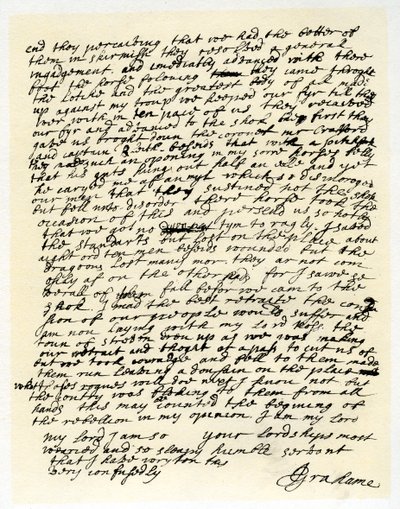 and they perceaving that we had the better of
them in skirmish they resolved a generall
ingadgment and imediatly advanced with there
foot the horse folowing they came throght
the lotche and the greatest body of all made
up against my troup we keeped our fyr till they
wer within ten pace of us they recaived
our fyr and advanced to the shok the first they
gave us broght down the coronet mr Crafford
and captain Bleith besides that with a
they mad such an opening in my sorre horses belly
that his guts hung out half an elle and yet
he carved me af an myl which so discoroged
our men that they sustined not the shok
but fell into disorder there horse took the
occasion of this and persued us so hotly
that we got no tym to ragly I saved
the standarts but lost on the place about
aight or ten men besids wounded but the
dragoons lost many mor they ar not com
esily af on the other syd for I sawe se
verall of them fall befor we cam to the
shok I mad the best retraite the con
sion of our people would suffer and
am now laying with my lord Ross the
toun of streven drou up as we was making
our retrait and thoght of a pas to cut us of
but we took courage and fell to them made
them run leaving a dousain on the place
what thes rogues will doe next I know not but
the contry was floking to them from all
hands this may be counted the begining of
the rebellion in my opinion I am my lord
my lord I am so your lordships most
wearied and so sleapy humble servant
that I have wryton this
very confusedly
JGrahame